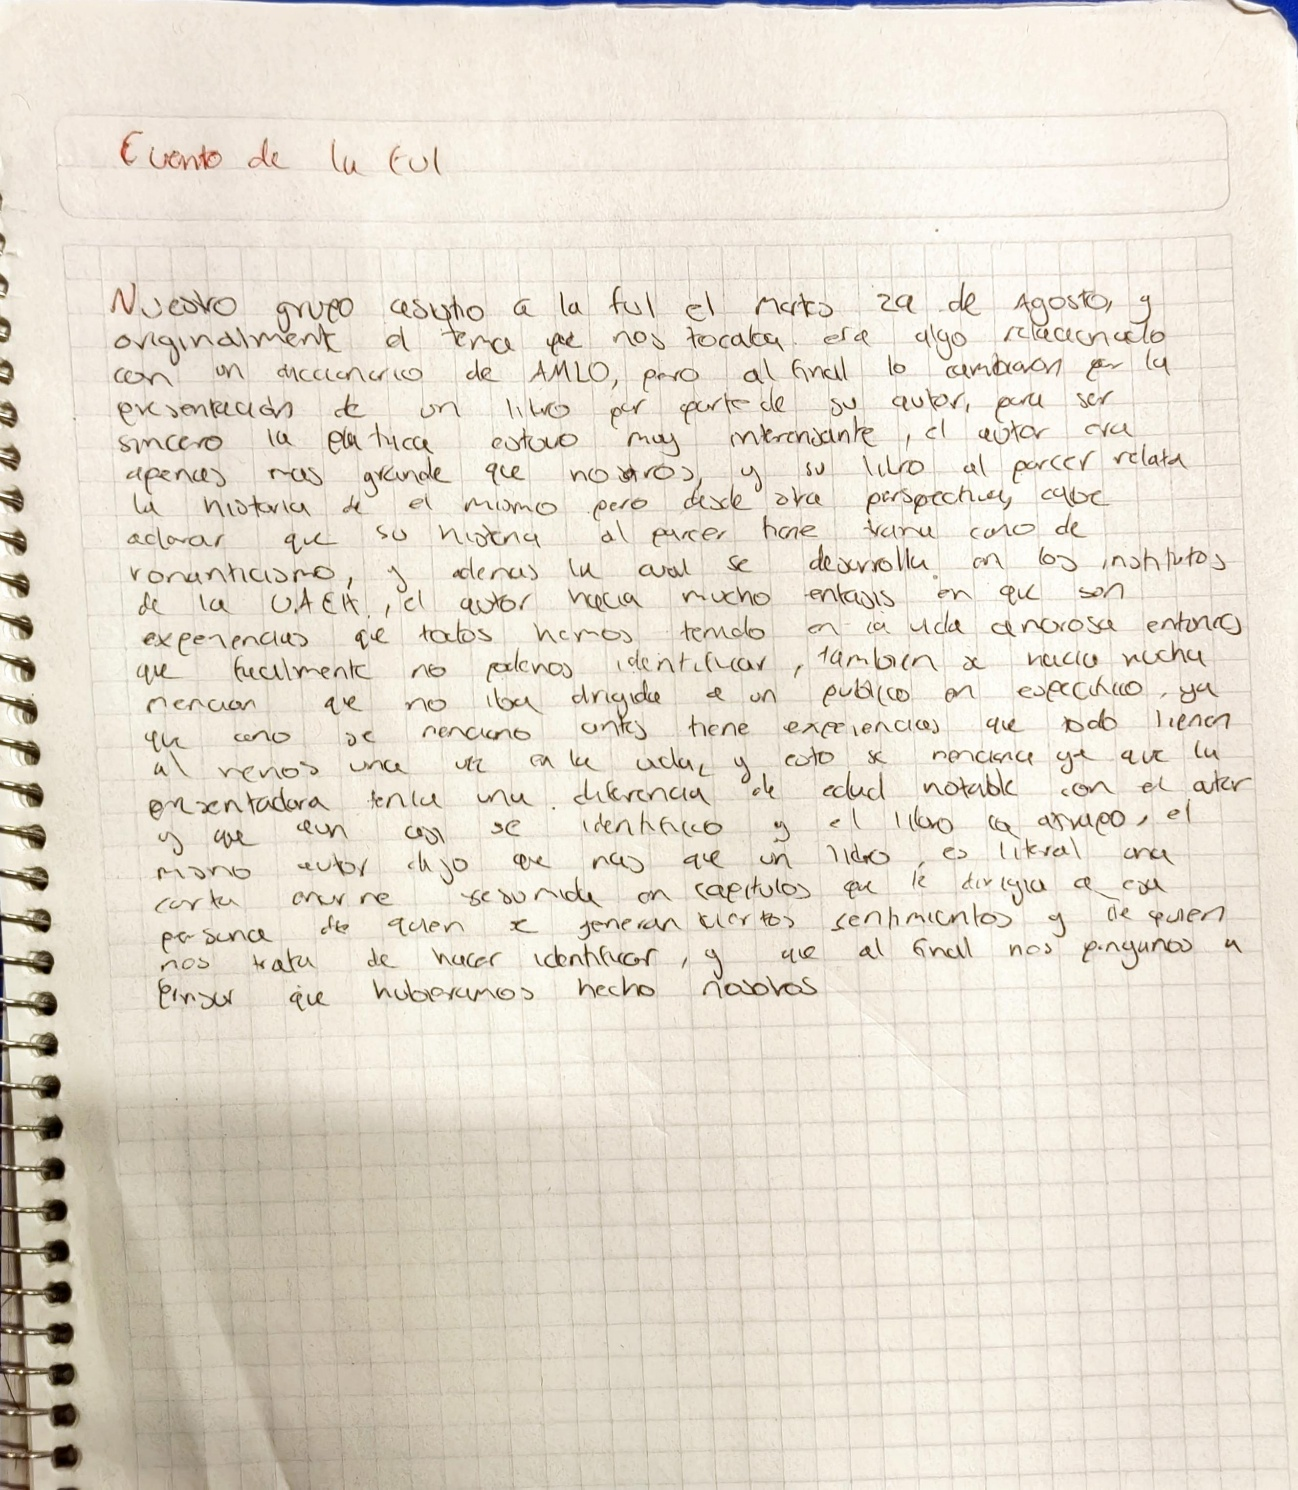 Evento de la ful
Nuestro grupo asistio a la ful el Martes 29 de Agosto, y
originalment el tema que nos tocaba era algo relacionado
con un diccionario de AMLO, pero al final lo cambiaron por la
presentación de un libro por parte de su autor, para ser
sincero la platica estuvo muy interensante, el autor era
apenas mas grande que nosotros, y su libro al parcer relata
la historia de el mismo pero desde otra perspectiva, cabe
aclarar que su historia al parcer tiene trama como de
romanticismo, y ademas la cual se desarrolla en los institutos
de la UAEH, el autor hacia mucho enfasis en que son
experiencias que todos hemos tenido en la vida amorosa entonces
que facilmente no podemos identificar, tambien se hacia mucha
mencion que no iba dirigida a un publico en especifico, ya
que como se menciono antes tiene experiencias que todo tienen
al menos una vez en la vida, y esto se menciona ya que la
presentadora tenia una diferencia de edad notable con el autor
y que aun asi se identifico y el libro la atrapo, el
mismo autor dijo que mas que un libro, es literal una
carta enorme resumida en capitulos que le dirigia a esa
persona de quien se generan ciertos sentimientos y de quien
nos trata de hacer identificar, y que al final nos pongamos a
pensar que hubieramos hecho nosotros